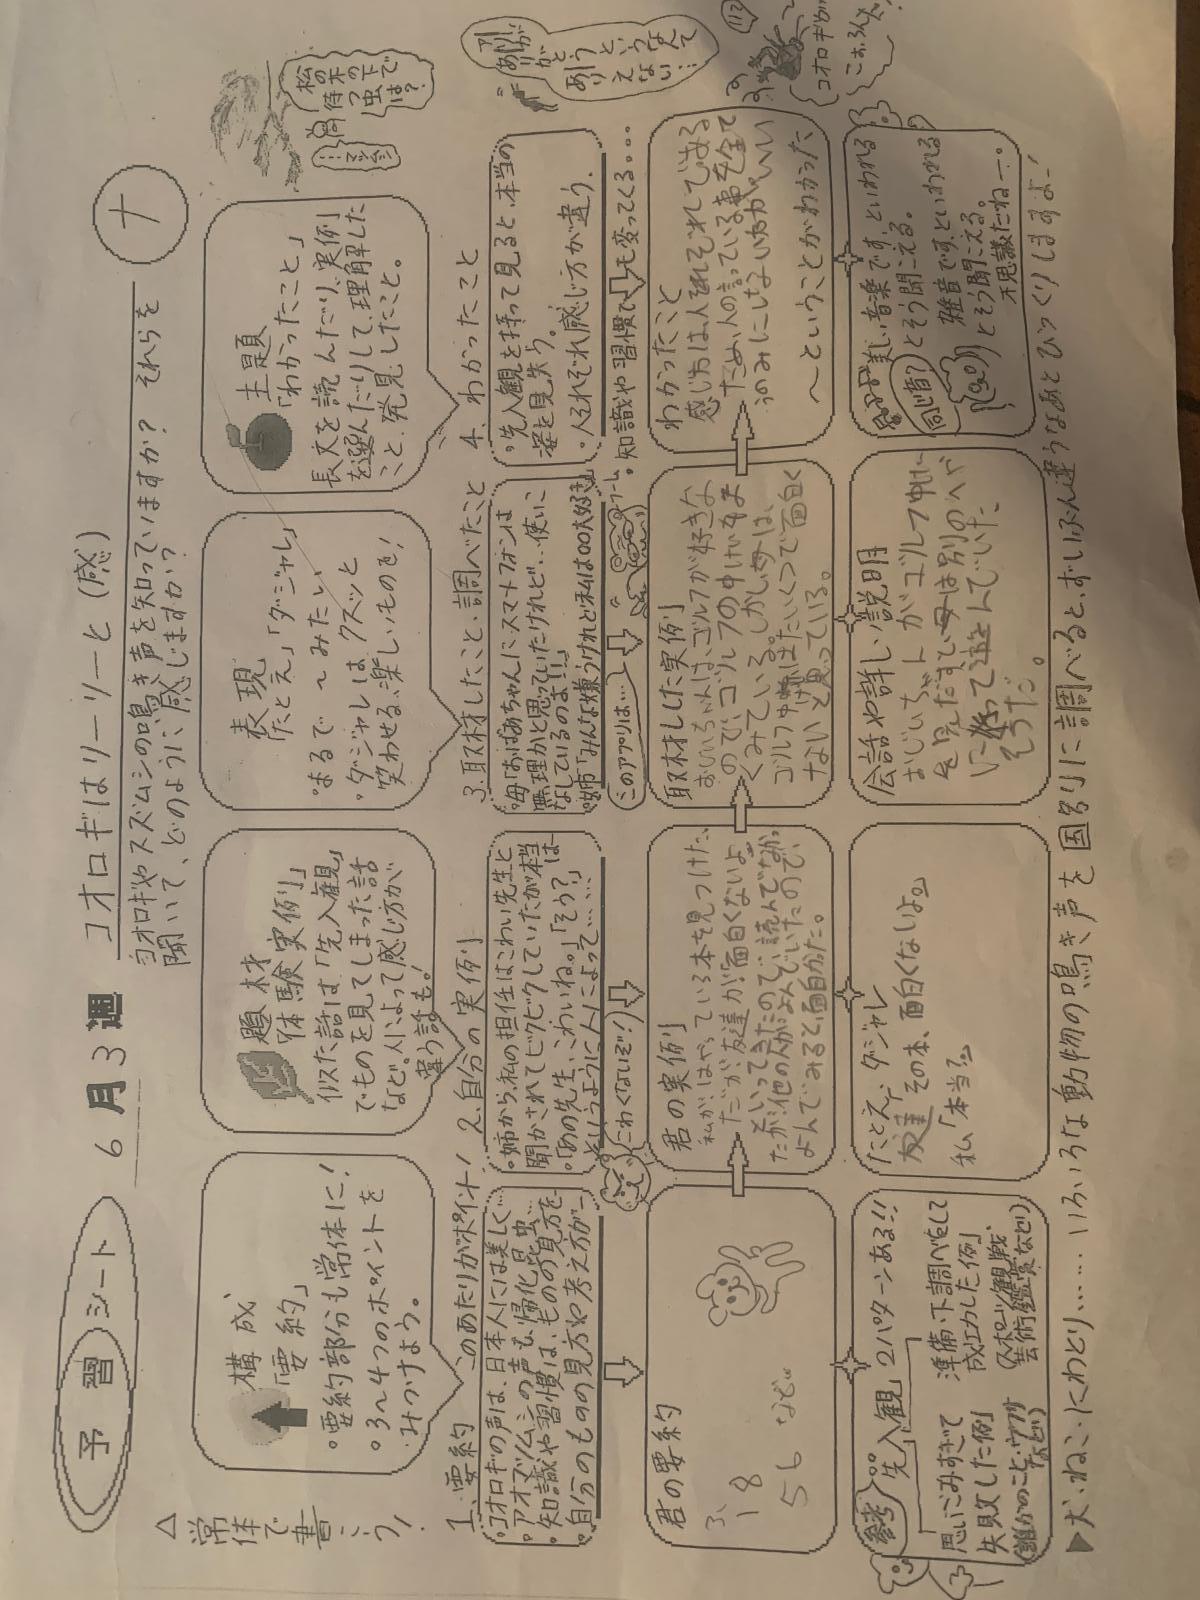 予習シート
6月3週
コオロギはリーリーと（感）
ナ
コオロギやスズムシの鳴き声を知っていますか？それらを
聞いて、どのように感じますか？
△常体で書こう！
構成
「要約」
。要約部分も常体に！
。3〜4つのポイントを
みつけよう。
題材
「体験実例」
似た話は「先入観」
でものを見てしまった話
など。人によって感じ方が
違う話も！
表現
「たとえ」「ダジャレ」
。まるで〜みたい
・ダジャレは、クスッと
笑わせる、楽しいものを！
主題
「わかったこと」
長文を読んだり、実例
を選んだりして、理解した
こと、発見したこと。
松の木の下で
待つ虫
は？
1.要約 このあたりがポイント！
・コオロギの声は、日本人には美しく…
・アオマツムシの声も、帰化昆虫…
・知識や習慣は、ものの見方を…
・自分のものの見方や考え方が…
2.自分の実例
・姉から、私の担任はこわい先生と
聞かされてビクビクしていたが本当は…
・「あの先生、こわいね。」「そう？」
というように人によって……
こわくないぞ！
3.取材したこと、調べたこと
・母「おばあちゃんにスマートフォンは
無理かと思っていたけれど…使いこ
なしているのよ！！」
・姉「みんな嫌うけれど私は○○大好き」
このアプリは…
4.わかったこと
。先入観を持って見ると、本当の
姿を見失う。
・人それぞれ感じ方が違う。
。知識や習慣でモ変ってくる。。。
君の要約
3、
1 8
5 6 など
君の実例
私が、はやっている本を見つけた、
だが、友達が「面白くないよ」
といってきたので読んでなかっ
たが、他の人がよんでいたので
よんでみると面白かった。
取材した実例
おじいちゃんは、ゴルフが好きな
ので、ゴルフの中けいをよ
くみている。しかし、母は、
ゴルフ中継はたいくつで面白く
ないと思っている。
わかったこと
感じ方は人それぞれである
ため、人の言っている事を全て
うのみにしない方がいい
〜ということがわかった
参考
「先入観」2パターンある！！
思いこみすぎて
失敗した例
（誰かのこと、ウワサなど）
準備、下調べをして
成功した例
（スポーツ観戦、
芸術鑑賞など）
たとえ、ダジャレ
友達「その本、面白くないよ。」
私「本当？」
会話や詳しい説明
おじいちゃんがゴルフ中けい
を見だすと、母は別のへや
に移って遊んでいた
そうだ。
美しい音楽です、といわれる
とそう聞こえる。
雑音です、といわれる
とそう聞こえる。
不思議だねー。
▶犬、ねこ、にわとり……いろいろな動物の鳴き声を国別に調べると、ずいぶん違うなあとびっくりしますよー！